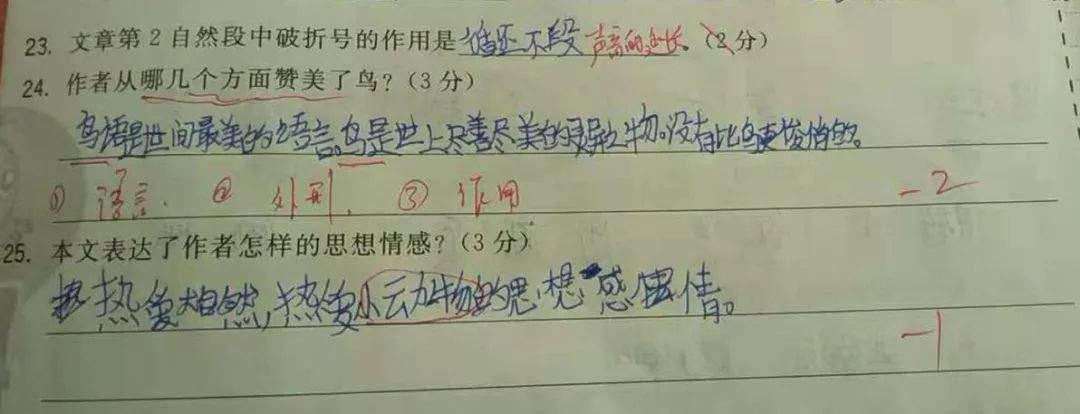 23. 文章第2自然段中破折号的作用是循还不段 声音的延长。(2分)
24. 作者从哪几个方面赞美了鸟?(3分)
鸟语是世间最美的语言。鸟是世上尽善尽美的灵异之物。没有比鸟更俊俏的。
① 语言. ② 外形. ③ 作用 -2
25. 本文表达了作者怎样的思想情感?(3分)
热爱大自然,热爱小动物的思想感情。
-1